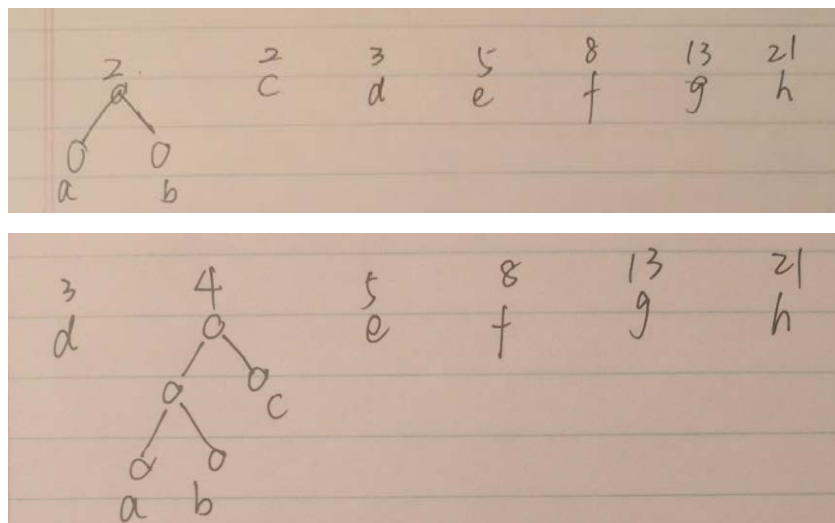 2 2 3 5 8 13 21
c d e f g h
a b
3 4 5 8 13 21
d e f g h
c
a b